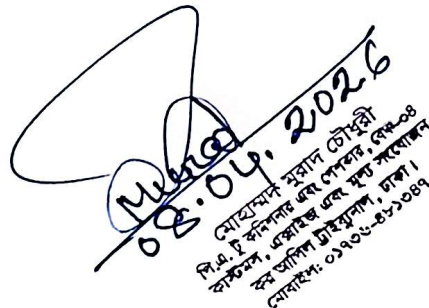 Murad
08.04.2026
মোহাম্মদ মুরাদ চৌধুরী
পি.এ. টু কমিশনার এবং পেশকার, বেঞ্চ-০৪
কাস্টমস, এক্সাইজ এবং মূল্য সংযোজন
কর আপিল ট্রাইব্যুনাল, ঢাকা।
মোবাইল: ০১৭৩৬-৪৮১০৪৭